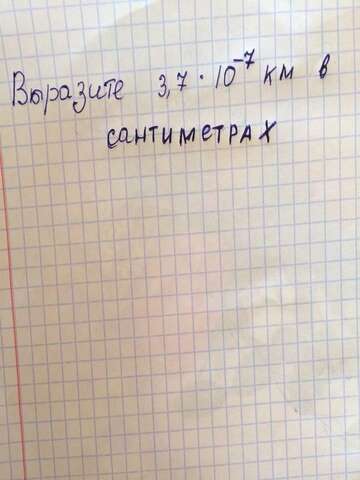 Выразите 3,7 · 10⁻⁷ км в
сантиметрах